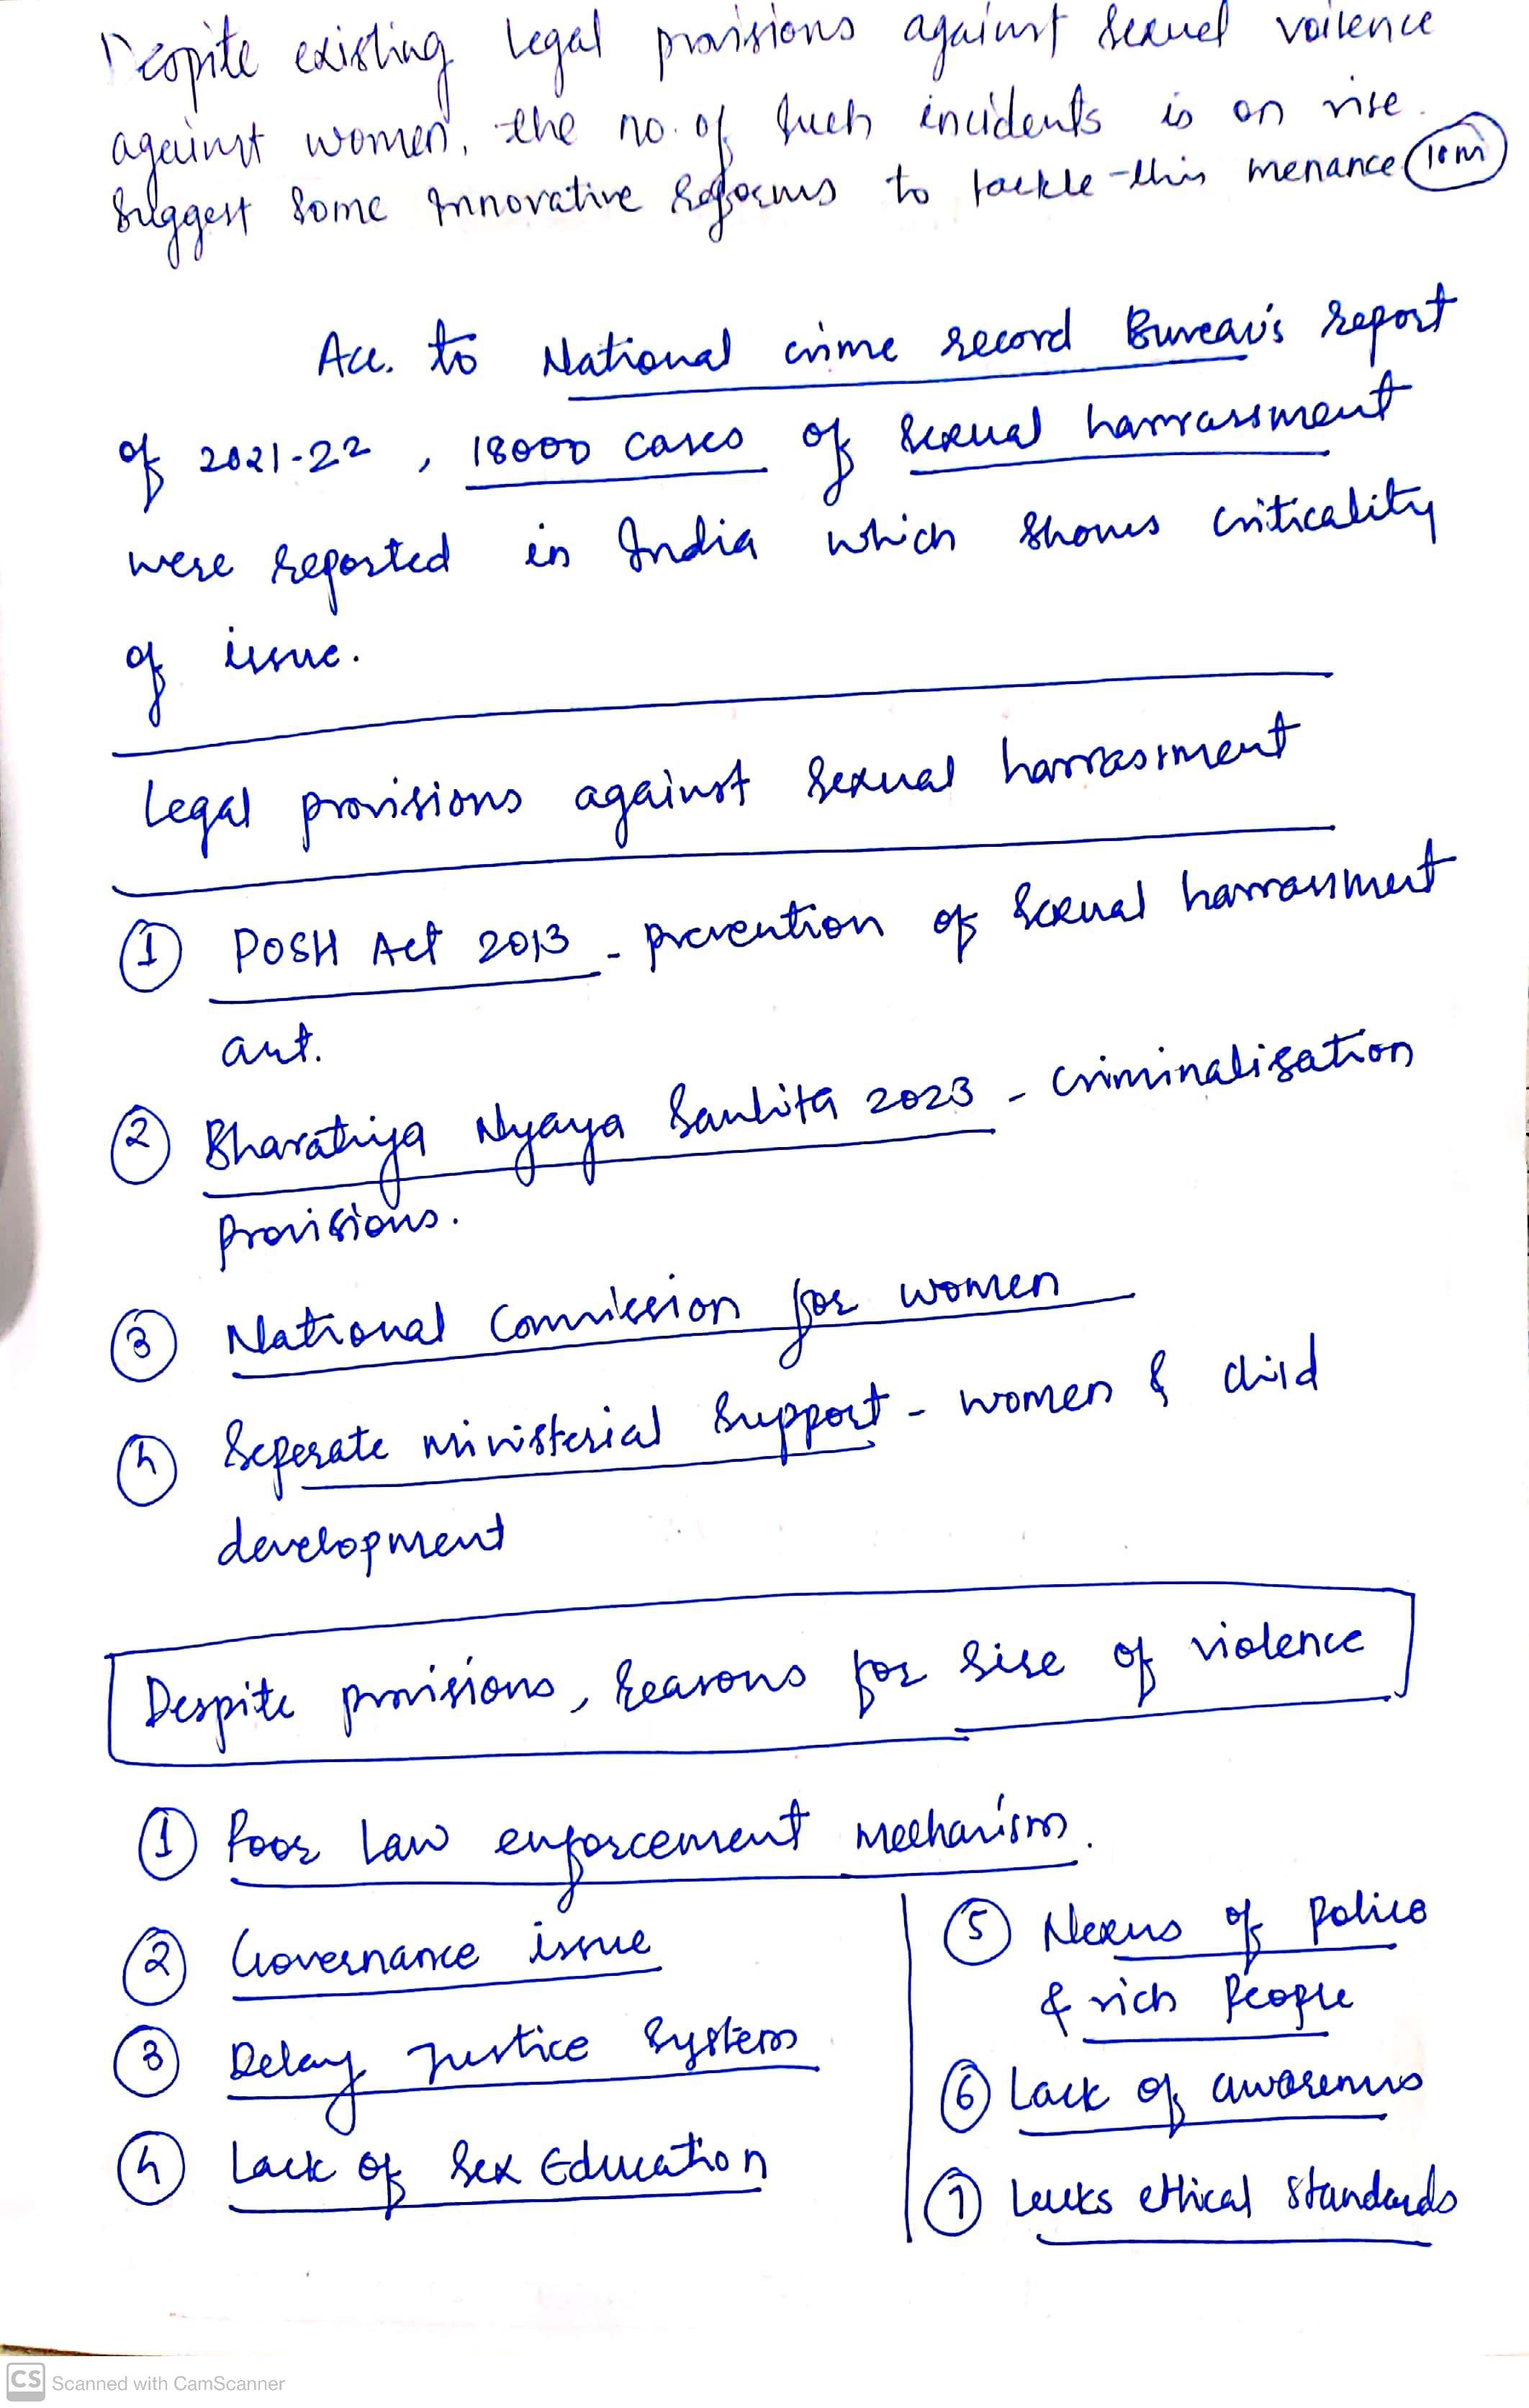 Despite existing legal provisions against sexuel voilence
against women, the no. of such incidents is on rise.
Suggest some Innovative Reforms to tackle this menance 10m
Acc. to National crime record Bureau's report
of 2021-22, 18000 cases of sexual harrassment
were reported in India which shows criticality
of issue.
Legal provisions against sexual harrasment
① POSH Act 2013 - prevention of sexual harrasment
act.
② Bharatiya Nyaya Sanhita 2023 - criminalisation
provisions.
③ National Commission for women
④ Seperate ministerial support - women & child
development
Despite provisions, reasons for rise of violence
① Poor law enforcement mechanism.
② Governance issue
③ Delay justice system
④ Lack of sex Education
⑤ Nexus of police
& rich people
⑥ Lack of awareness
⑦ Lacks ethical standards
CS Scanned with CamScanner